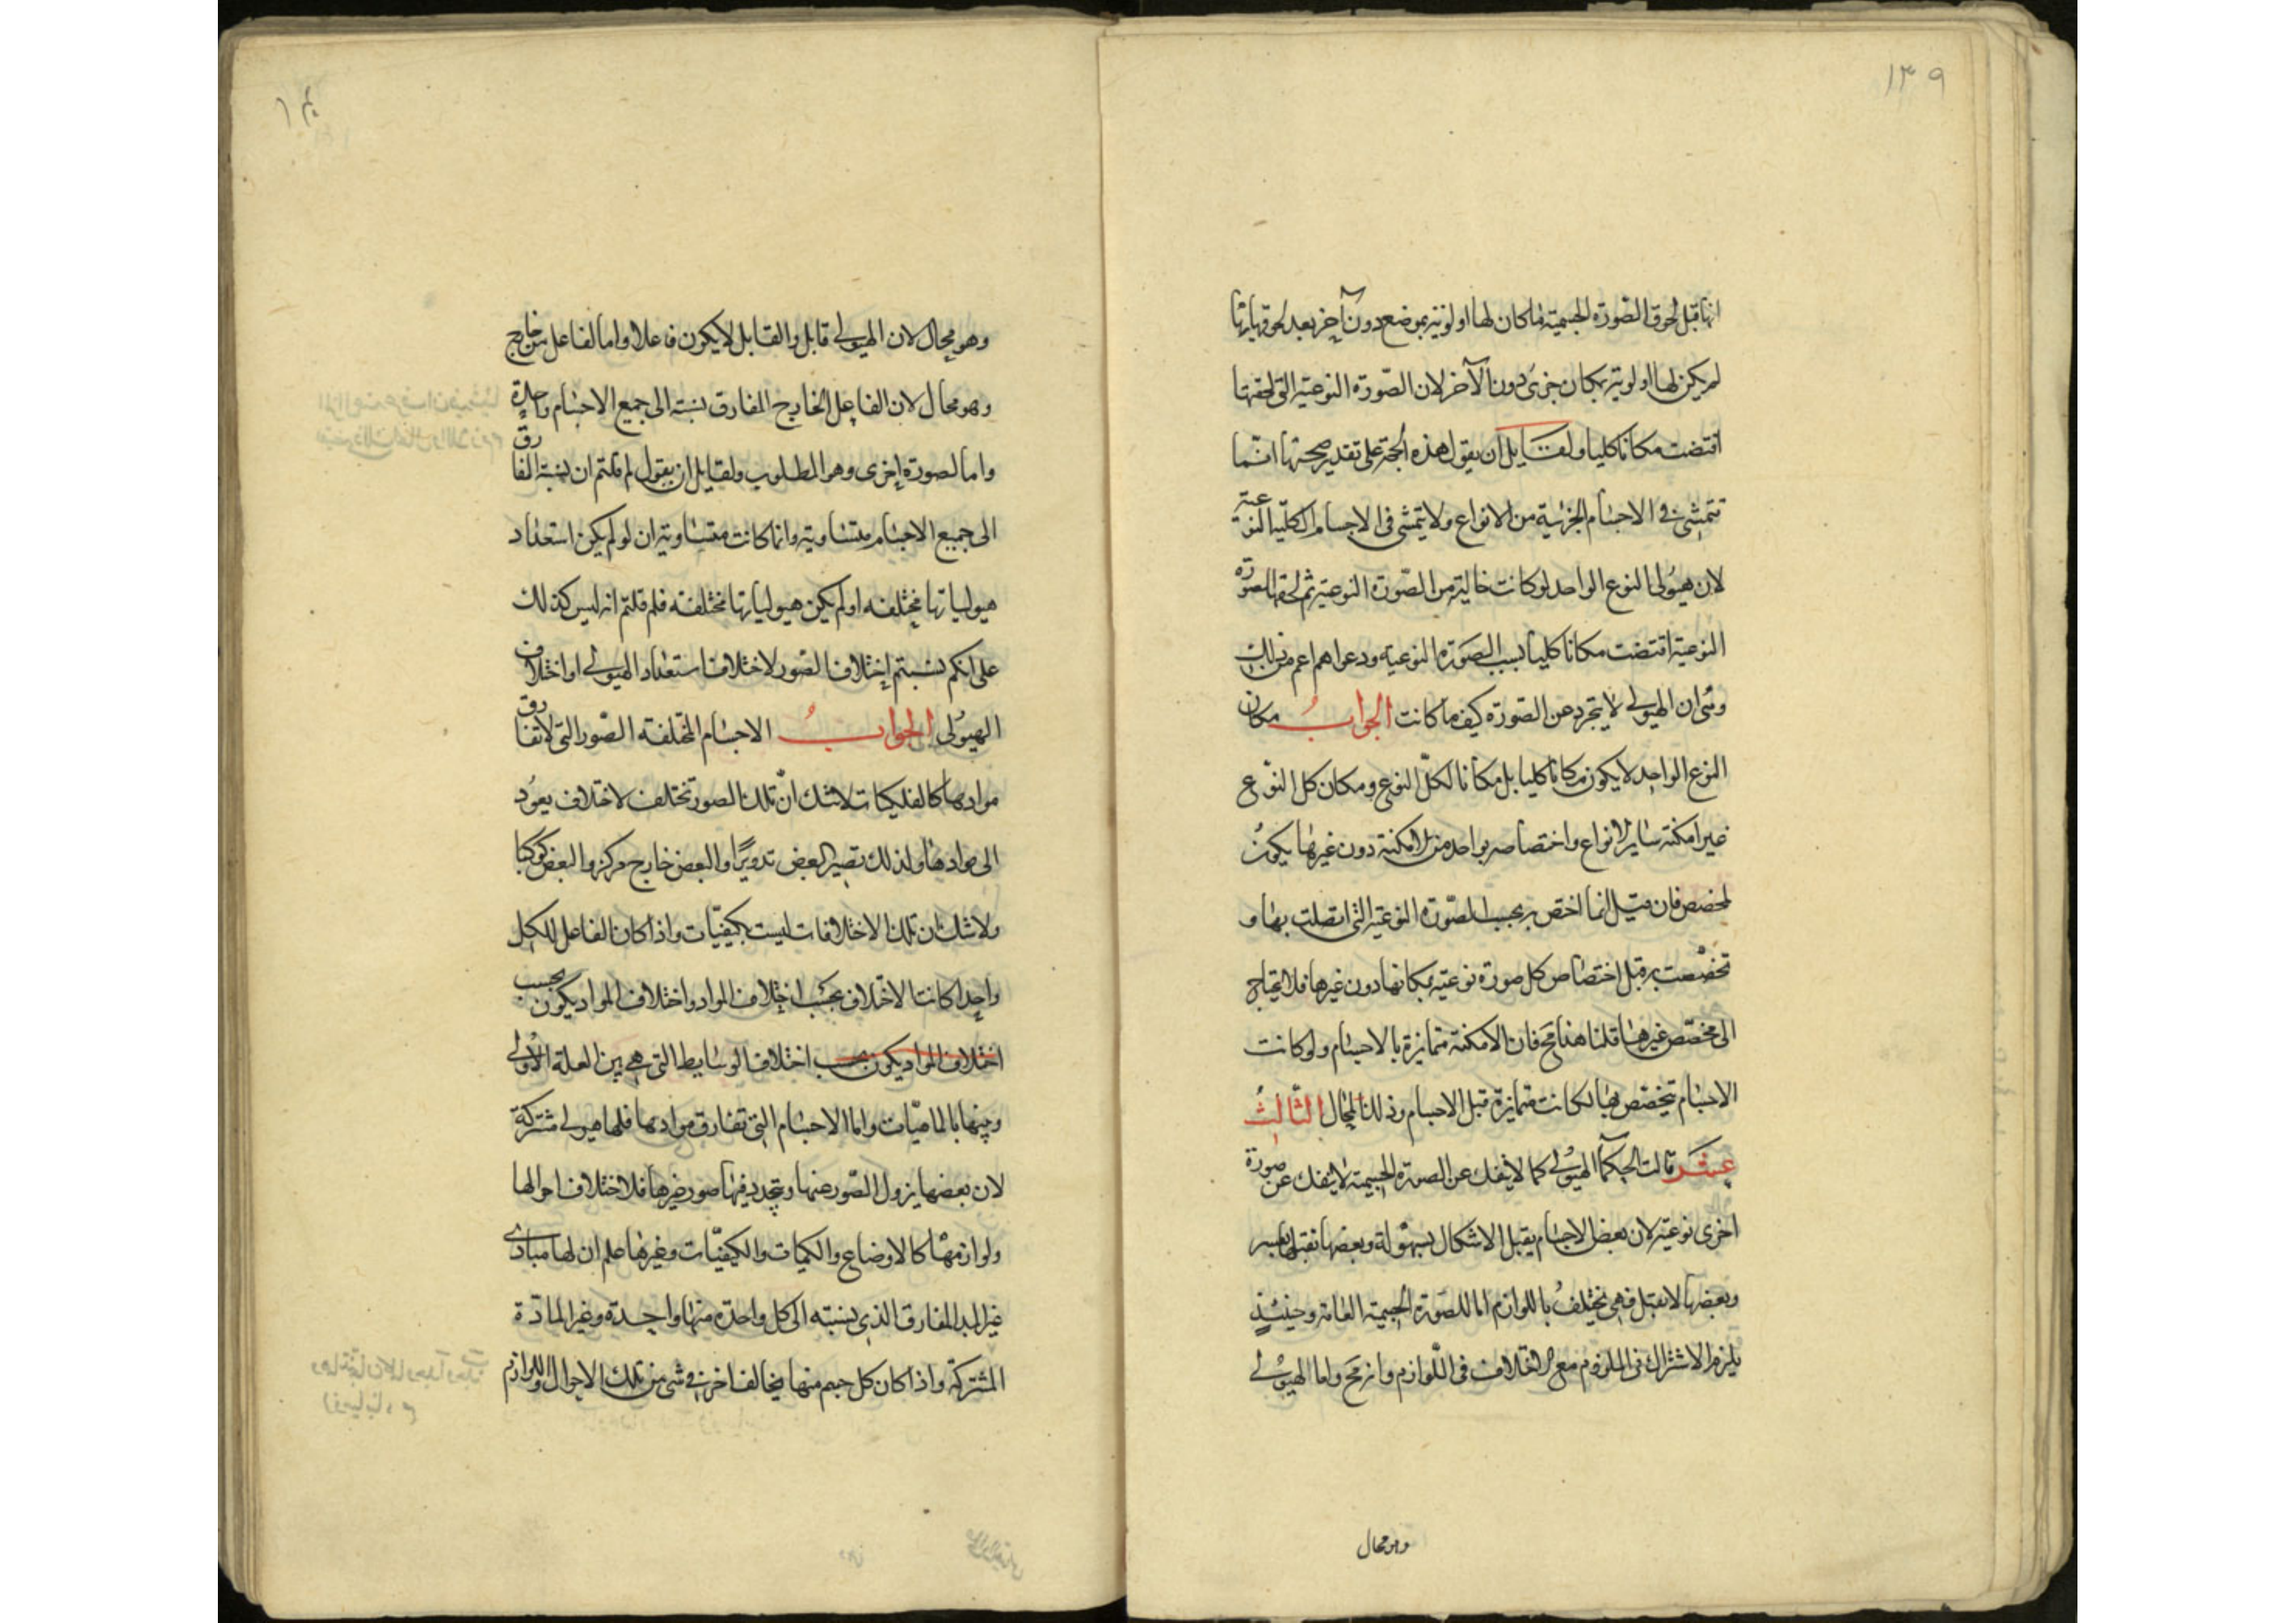 ١٣٩
انها قبل لحوق الصورة الجسمية ما كان لها اولوية بموضع دون آخر بعد لحوقها بها
لم يكن لها اولوية بمكان جزئ دون الآخر لان الصورة النوعية التى لحقتها
اقتضت مكانا كليا ولقايل ان يقول هذه الحجة على تقدير صحتها انما
تتمشى فى الاجسام الجزئية من الانواع ولا يتمشى فى الاجسام الكلية النوعية
لان هيولى النوع الواحد لو كانت خالية من الصورة النوعية ثم لحقها الصورة
النوعية اقتضت مكانا كليا بسبب الصورة النوعية ودعواهم اعم من ذلك
وهى ان الهيولى لا يتجرد عن الصورة كيف ما كانت الجواب مكان
النوع الواحد لا يكون مكانا كليا بل مكانا لكل النوع ومكان كل النوع
غير امكنة ساير الانواع واختصاصه بواحد من الامكنة دون غيرها يكون
لمخصص فان قيل انما اختص به بحسب الصورة النوعية التى اتصلت بها و
تخصصت به قبل اختصاص كل صورة نوعية بمكانها دون غيرها فلا يحتاج
الى مخصص غيرها قلنا هذا مح فان الامكنة متمايزة بالاجسام ولو كانت
الاجسام تتخصص بها لكانت متمايزة قبل الاجسام وذلك محال الثالث
عشر قالت الحكما الهيولى كما لا ينفك عن الصورة الجسمية لا ينفك عن صورة
اخرى نوعية لان بعض الاجسام يقبل الاشكال بسهولة وبعضها تقبلها بعسر
وبعضها لا تقبل فهى تختلف باللوازم اما للصورة الجسمية العامة وحينئذ
يلزم الاشتراك فى الملزوم مع الاختلاف فى اللوازم وانه مح واما الهيولى
وهو محال
وهو محال لان الهيولى قابل والقابل لا يكون فاعلا واما لفاعل من خارج
وهو محال لان الفاعل الخارج المفارق نسبته الى جميع الاجسام واحدة
واما لصورة اخرى وهو المطلوب ولقايل ان يقول لم قلتم ان نسبة المفارق
الى جميع الاجسام متساوية وانما كانت متساوية ان لو لم يكن استعداد
هيولياتها مختلفة او لم يكن هيولياتها مختلفة فلم قلتم انه ليس كذلك
على انكم نسبتم اختلاف الصور لاختلاف استعداد الهيولى او اختلاف
الهيولى الجواب الاجسام المختلفة الصور التى لا تفارق
موادها كالفلكيات لا شك ان تلك الصور تختلف لاختلاف يعود
الى موادها ولذلك تصير البعض تدويرا والبعض خارج مركز والبعض كوكبا
ولا شك ان تلك الاختلافات ليست بكيفيات واذا كان الفاعل للكل
واحدا كانت الاختلاف بحسب اختلاف المواد واختلاف المواد يكون بحسب
اختلاف المواد يكون بحسب اختلاف الوسايط التى هى بين العلة الاولى
وبينها بالماهيات واما الاجسام التى تفارق موادها فلها هيولى مشتركة
لان بعضها يزول الصور عنها ويتجدد فيها صور غيرها فلاختلاف احوالها
ولوازمها كالاوضاع والكميات والكيفيات وغيرها علم ان لها مبادى
غير المبدا المفارق الذى نسبته الى كل واحدة منها واحدة وغير المادة
المشتركة واذا كان كل جسم منها يخالف اخر فى شى من تلك الاحوال واللوازم